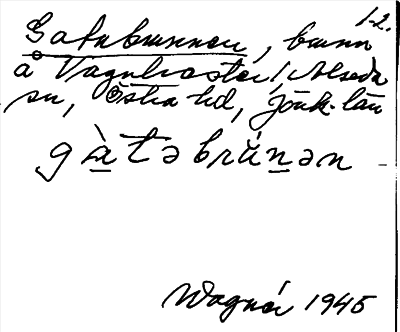 1-2.
Gatubrunnen, brunn
å Vagnhester, Alseda
sn, Östra hd, Jönk. län
gàtəbrŭnən
Wagnér 1945